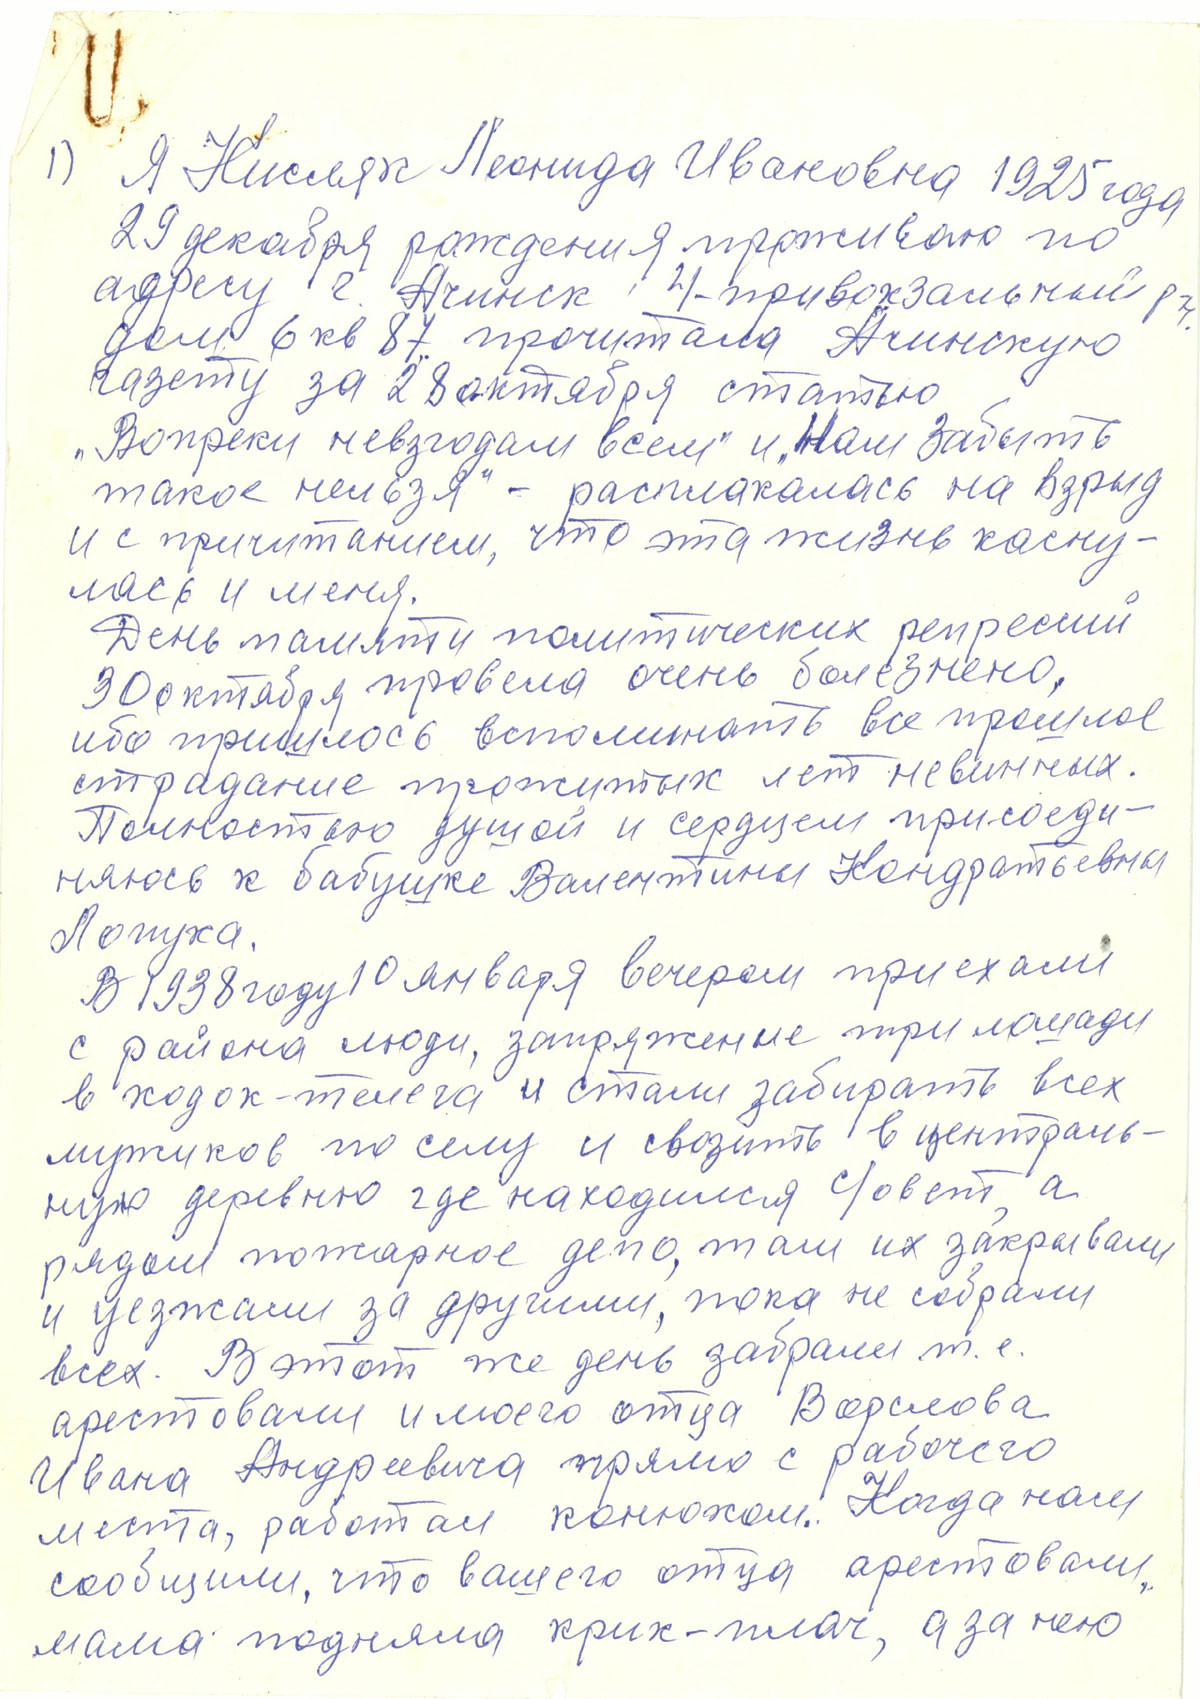 1) Я Кисляк Леонида Ивановна 1925 года
29 декабря рождения проживаю по
адресу г. Ачинск 4-привокзальный р-н.
дом 6 кв 87. прочитала Ачинскую
газету за 28 октября статью
„Вопреки невзгодам всем" и „Нам забыть
такое нельзя" – расплакалась на взрыд
и с причитанием, что эта жизнь косну-
лась и меня.
День памяти политических репресий
30 октября провела очень болезнено,
ибо пришлось вспоминать все прошлое
страдание прожитых лет невинных.
Полностью душой и сердцем присоеди-
няюсь к бабушке Валентины Кондратьевны
Лопуха.
В 1938 году 10 января вечером приехали
с района люди, запряженые три лошади
в ходок-телега и стали забирать всех
мужиков по селу и свозить в централь-
ную деревню где находился с/совет, а
рядом пожарное депо, там их закрывали
и уезжали за другими, пока не собрали
всех. В этот же день забрали т.е.
арестовали и моего отца
Ивана Андреевича прямо с рабочего
места, работал конюхом. Когда нам
сообщили, что вашего отца арестовали,
мама подняла крик-плач, а за нею